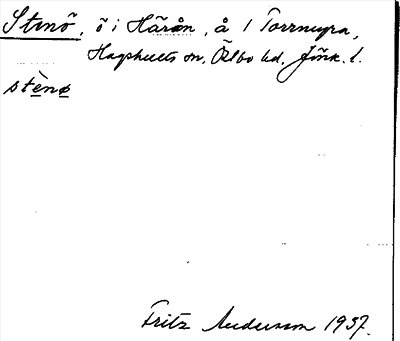 Stenö, ö i Härån, å 1 Torrmyra,
Hagshults sn, Östbo hd, Jönk. l.
stènø
Fritz Andersson 1937.